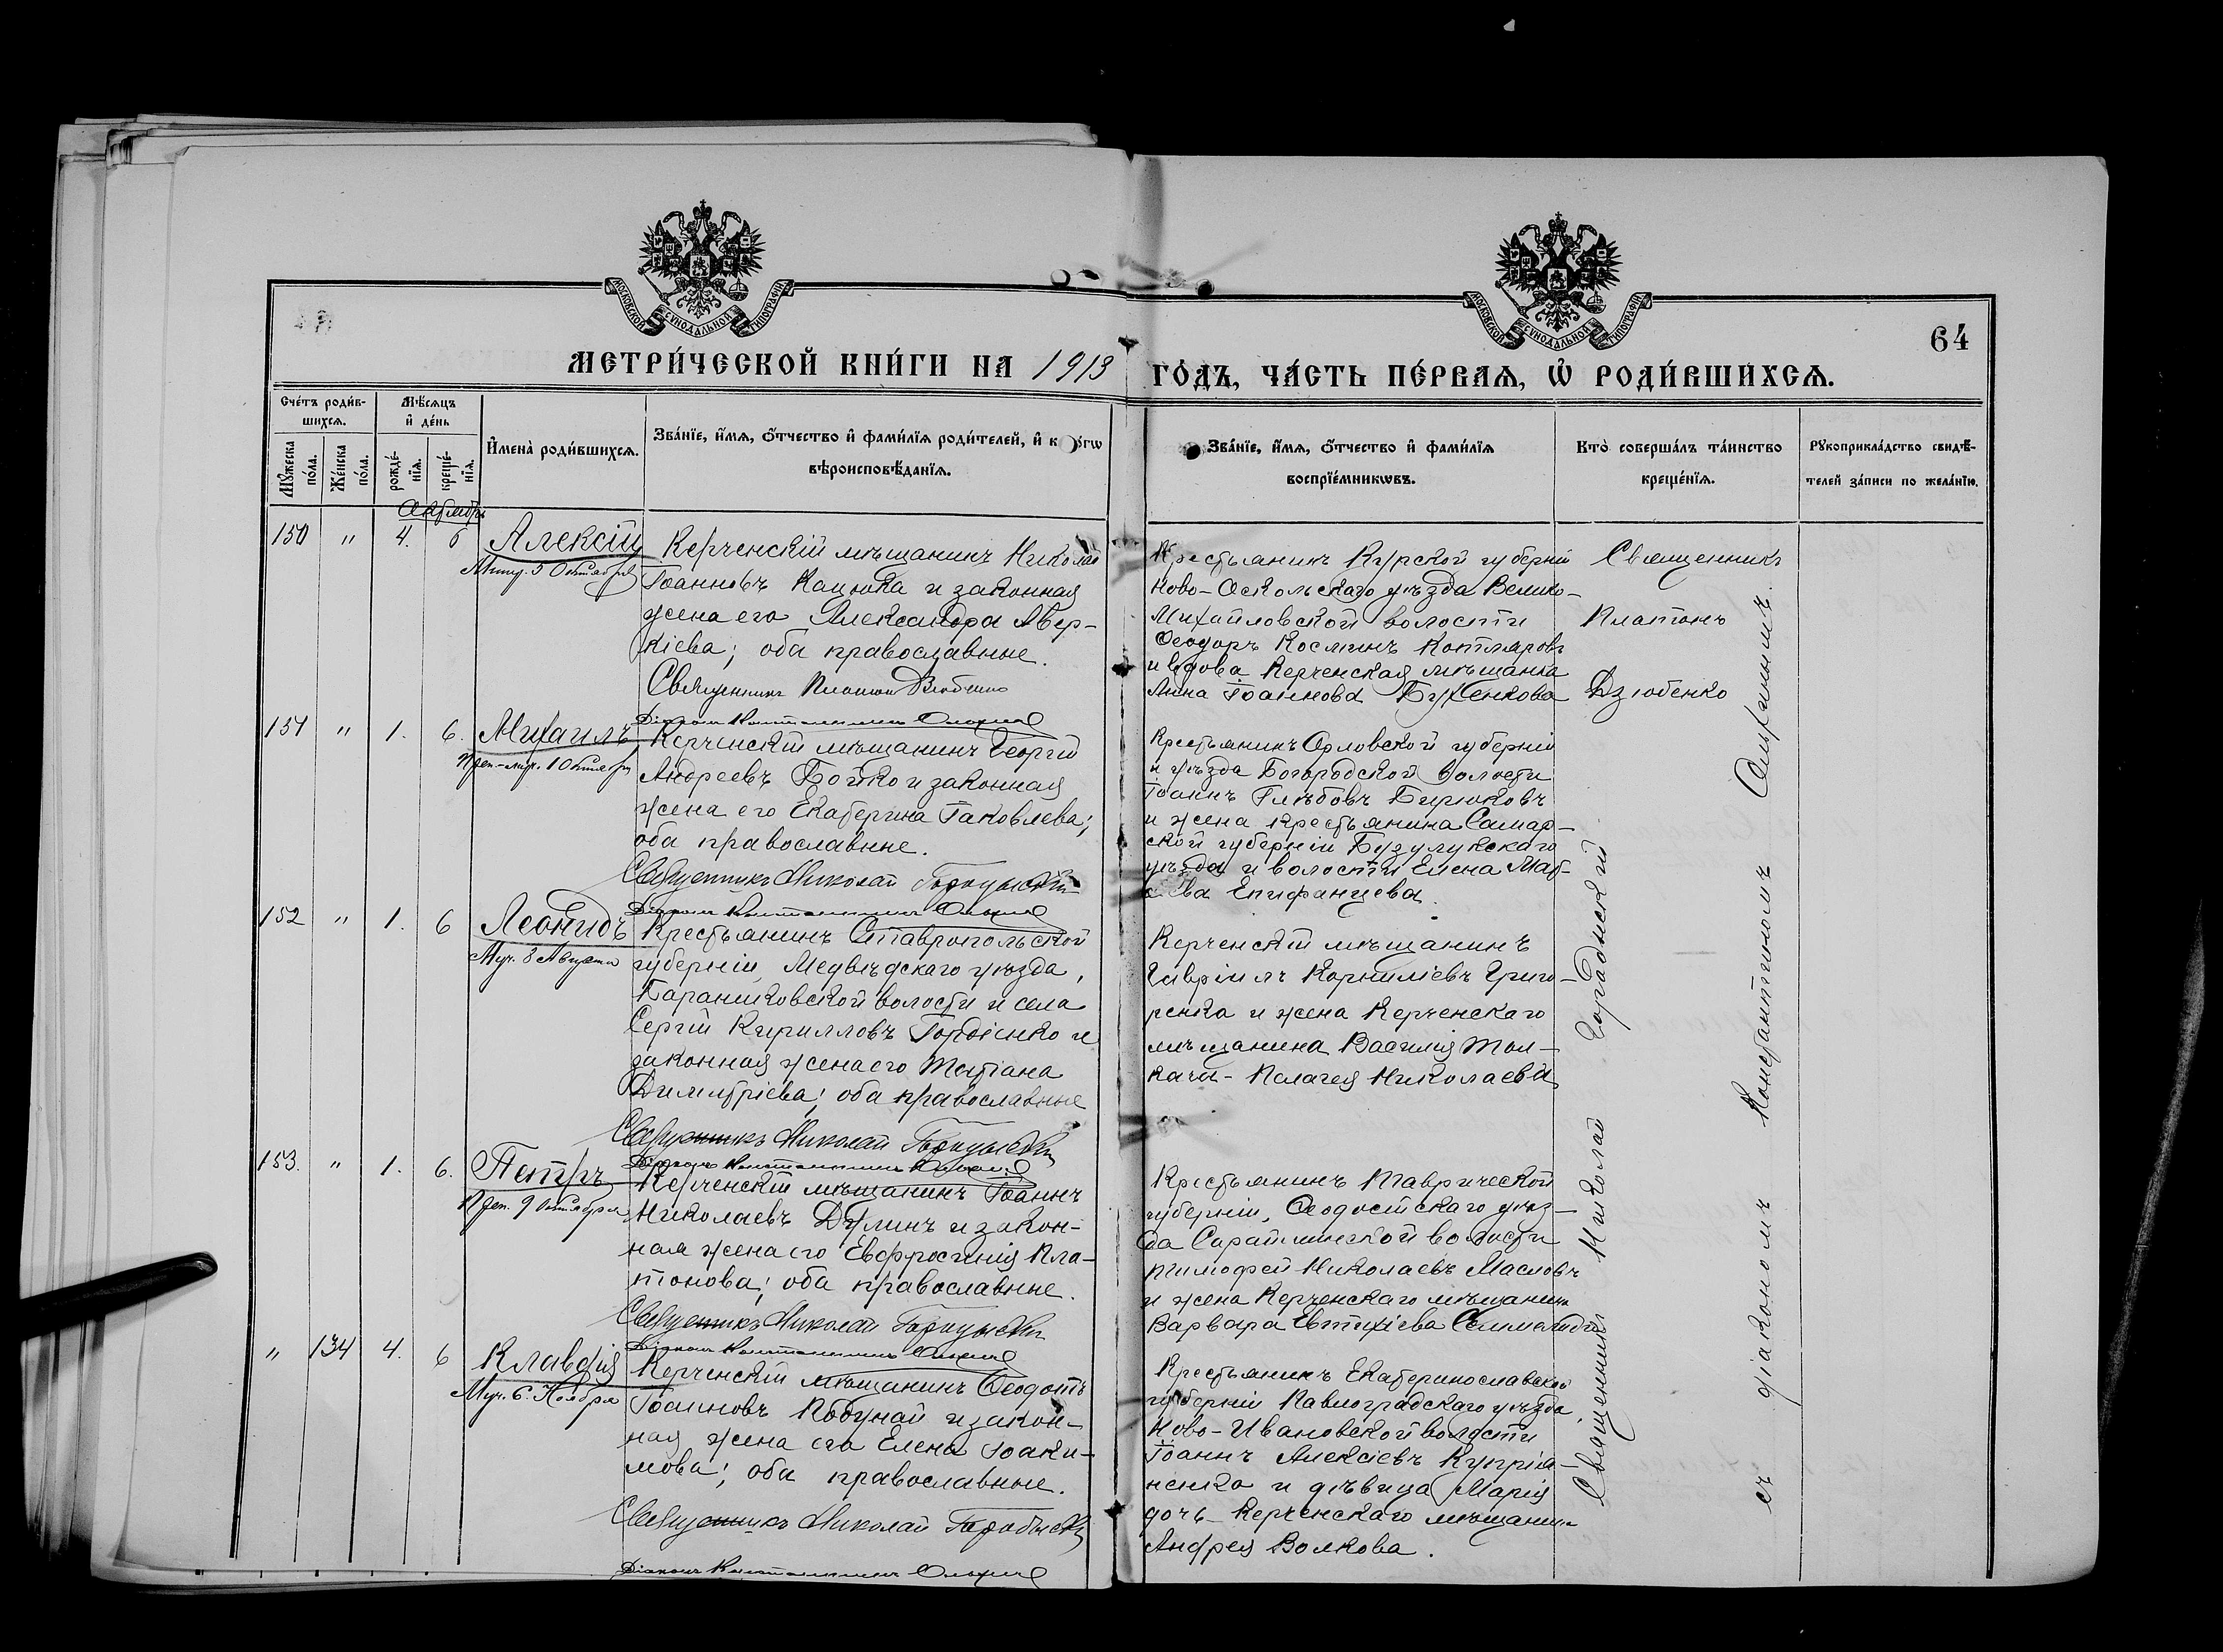 МОСКОВСКОЙ СѴНОДАЛЬНОЙ ТИПОГРАФІИ
МОСКОВСКОЙ СѴНОДАЛЬНОЙ ТИПОГРАФІИ
64
МЕТРИ́ЧЕСКОЙ КНИ́ГИ НА 1913 ГО́ДЪ, ЧА́СТЬ ПЕ́РВАѦ, Ѡ҆ РОДИ́ВШИХСѦ.
Сче́тъ роди́в-
шихсѧ.
Мѣ́сѧцъ
и҆ де́нь
Мꙋ́жеска по́ла.
Же́нска по́ла.
рожде́-
нїѧ.
креще́-
нїѧ.
И҆мена̀ роди́вшихсѧ.
Зва́нїе, и҆́мѧ, ѻ҆́тчество и҆ фами́лїѧ роди́телей, и҆ к
вѣроисповѣ́данїѧ.
Зва́нїе, и҆́мѧ, ѻ҆́тчество и҆ фами́лїѧ
воспрїе́мникѡвъ.
Кто̀ соверша́лъ та́инство
креще́нїѧ.
Рꙋкоприкла́дство свидѣ́-
телей за́писи по жела́нїю.
Октябрь
150 " 4. 6 Алексій
5 Октября
Керченскій мѣщанинъ Николай
Іоанновъ Кацюка и законная
жена его Александра Авер-
кіева; оба православные.
Священникъ Платонъ Дзюбенко
Діаконъ Константинъ
Крестьянинъ Курской губерніи
Ново-Оскольскаго уѣзда Велико-
Михайловской волости
Ѳеодоръ Косминъ Котляровъ
и вдова Керченская мѣщанка
Анна Іоаннова
Священникъ
Платонъ
Дзюбенко
151 " 1. 6. Михаилъ
1 Октября
Керченскій мѣщанинъ Георгій
Андреевъ Бойко и законная
жена его Екатерина Іаковлева;
оба православные.
Священникъ Николай
Діаконъ Константинъ
Крестьянинъ Орловской губерніи
и уѣзда Богородской волости
Іоаннъ Глѣбовъ Бирюковъ
и жена крестьянина Самар-
ской губерніи Бузулукскаго
уѣзда и волости Елена
Епифанцева.
152 " 1. 6 Леонидъ
Муч. 8 Августа
Крестьянинъ Ставропольской
губерніи, Медвѣдскаго уѣзда,
волости и села
Сергій Кирилловъ Гордіенко и
законная жена его Татіана
Димитріева; оба православные
Священникъ Николай
Діаконъ Константинъ
Керченскій мѣщанинъ
Гавріилъ Корниліевъ Григо-
ренко и жена Керченскаго
мѣщанина Василія Тол-
кача - Пелагея Николаева
153. " 1. 6. Петръ
Преп. 9 Октября
Керченскій мѣщанинъ Іоаннъ
Николаевъ Дулинъ и закон-
ная жена его Евфросинія Пла-
тонова; оба православные.
Священникъ Николай
Діаконъ Константинъ
Крестьянинъ Таврической
губерніи, Ѳеодосійскаго уѣз-
да Сарайминской волости
Тимофей Николаевъ Масловъ
и жена Керченскаго мѣщанина
Варвара Евтихіева
" 134 4. 6 Клавдія
Муч. 6. Ноября
Керченскій мѣщанинъ Ѳеодотъ
Іоанновъ Кобунай и закон-
ная жена его Елена Іоаки-
мова; оба православные.
Священникъ Николай
Діаконъ Константинъ
Крестьянинъ Екатеринославской
губерніи Павлоградскаго уѣзда,
Ново-Ивановской волости
Іоаннъ Алексіевъ Купрія-
ненко и дѣвица Марія
дочь Керченскаго мѣщанина
Андрея Волкова.
Священникъ Николай
съ діакономъ Константиномъ